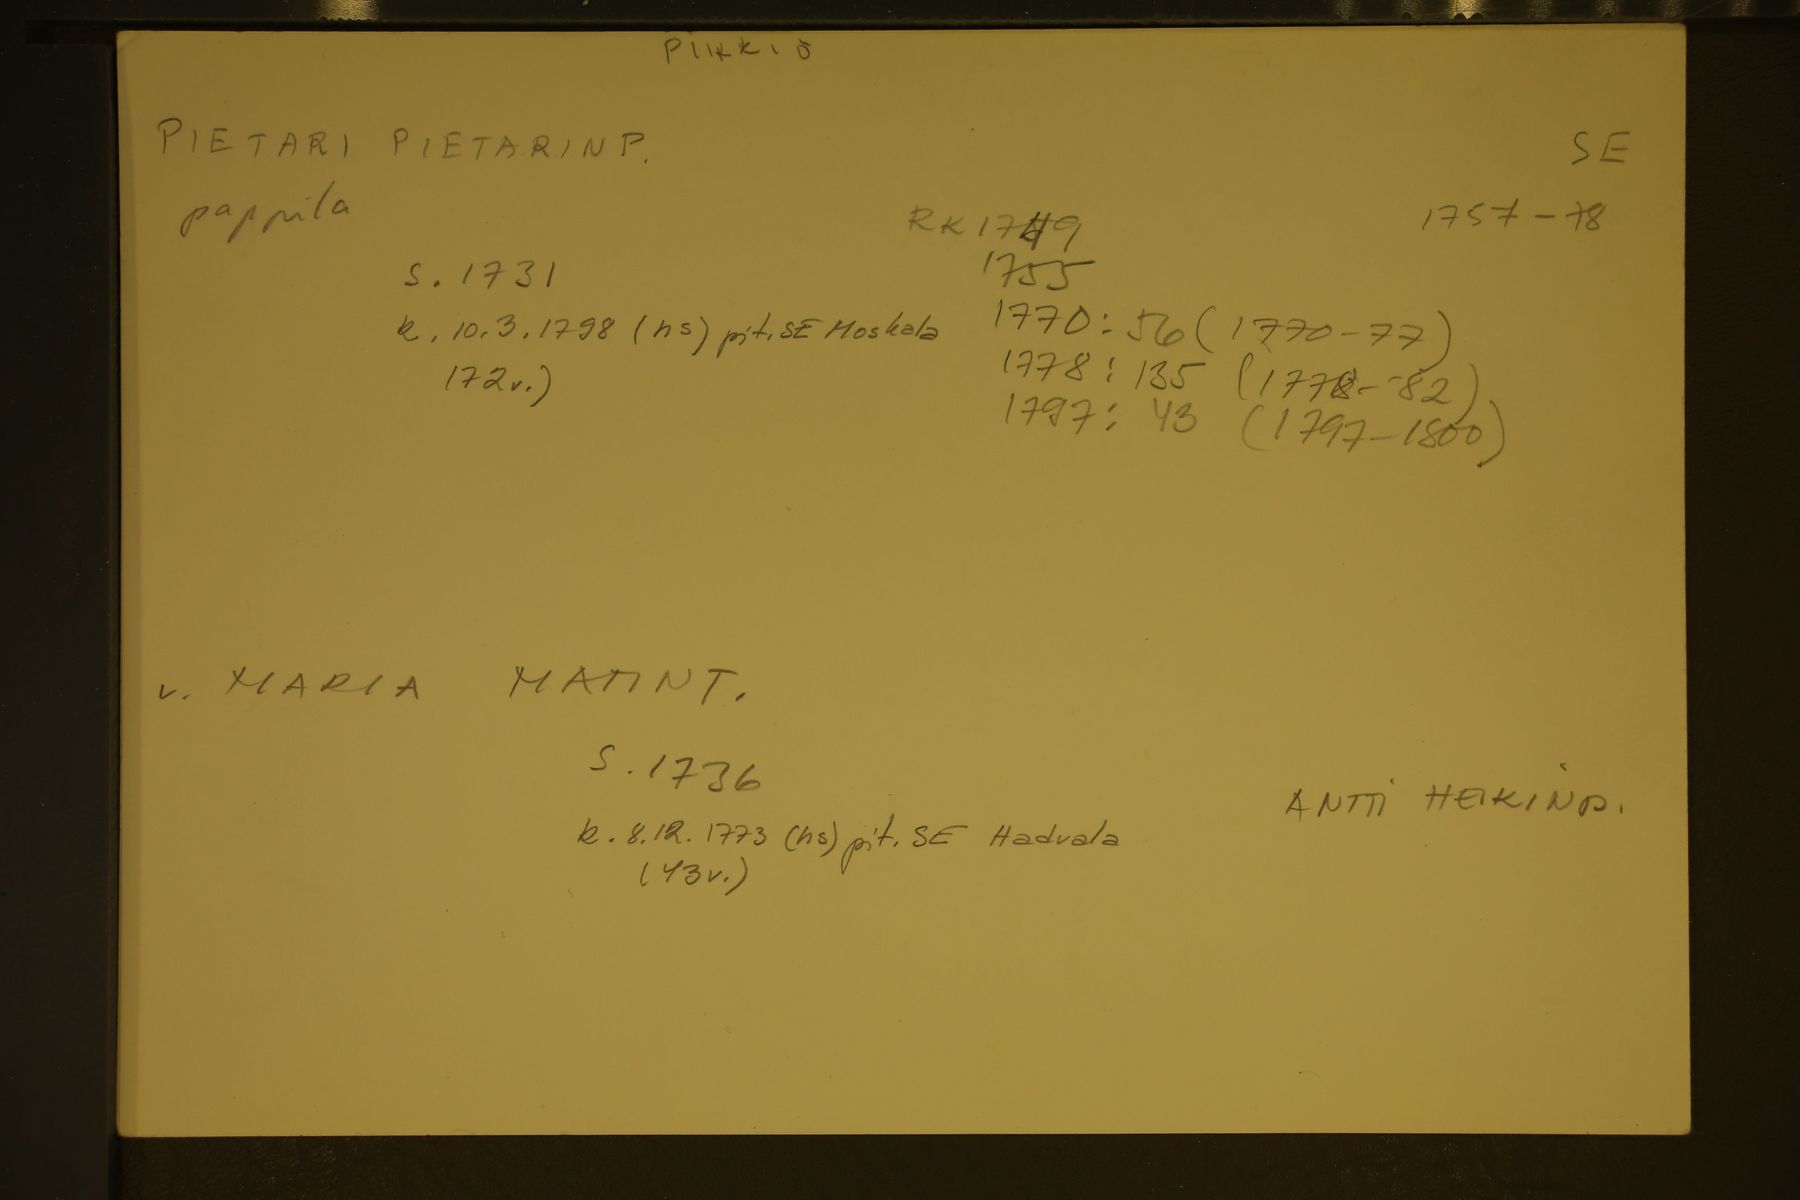 PIIKKIÖ
PIETARI PIETARINP. SE
pappila RK 1749 1757-78
s. 1731 1755
k. 10.3.1798 (hs) pit. SE Moskala 1770: 56 (1770-77)
(72v.) 1778: 135 (1778-82)
1797: 43 (1797-1800)
v. MARIA MATINT.
s. 1736
ANTTI HEIKINP.
k. 8.12.1773 (hs) pit. SE Hadvala
(43v.)